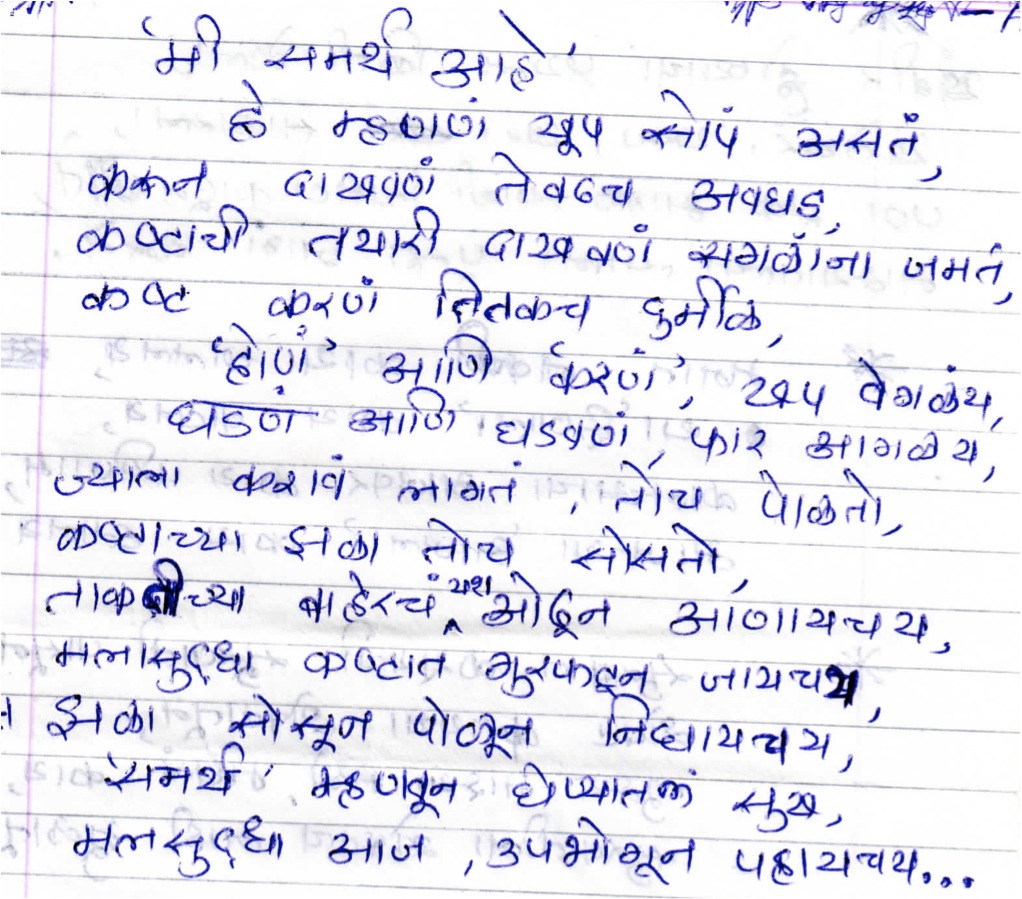 'मी समर्थ आहे'
हे म्हणणं खूप सोपं असतं,
करून दाखवणं तेवढंच अवघड,
कष्टाची तयारी दाखवणं सगळ्यांना जमतं,
कष्ट करणं तितकच दुर्मीळ,
'होणं' आणि 'करणं', खूप वेगळंय,
घडणं आणि घडवणं, फार आगळंय,
ज्याला करावं लागतं, तोच पोळतो,
कष्टाच्या झळा तोच सोसतो,
ताकदीच्या बाहेरचं यश ओढून आणायचंय,
मलासुद्धा कष्टात गुरफटून जायचंय,
झळा सोसून पोळून निघायचंय,
'समर्थ' म्हणवून घेण्यातलं सुख,
मलासुद्धा आज, उपभोगून पहायचंय...